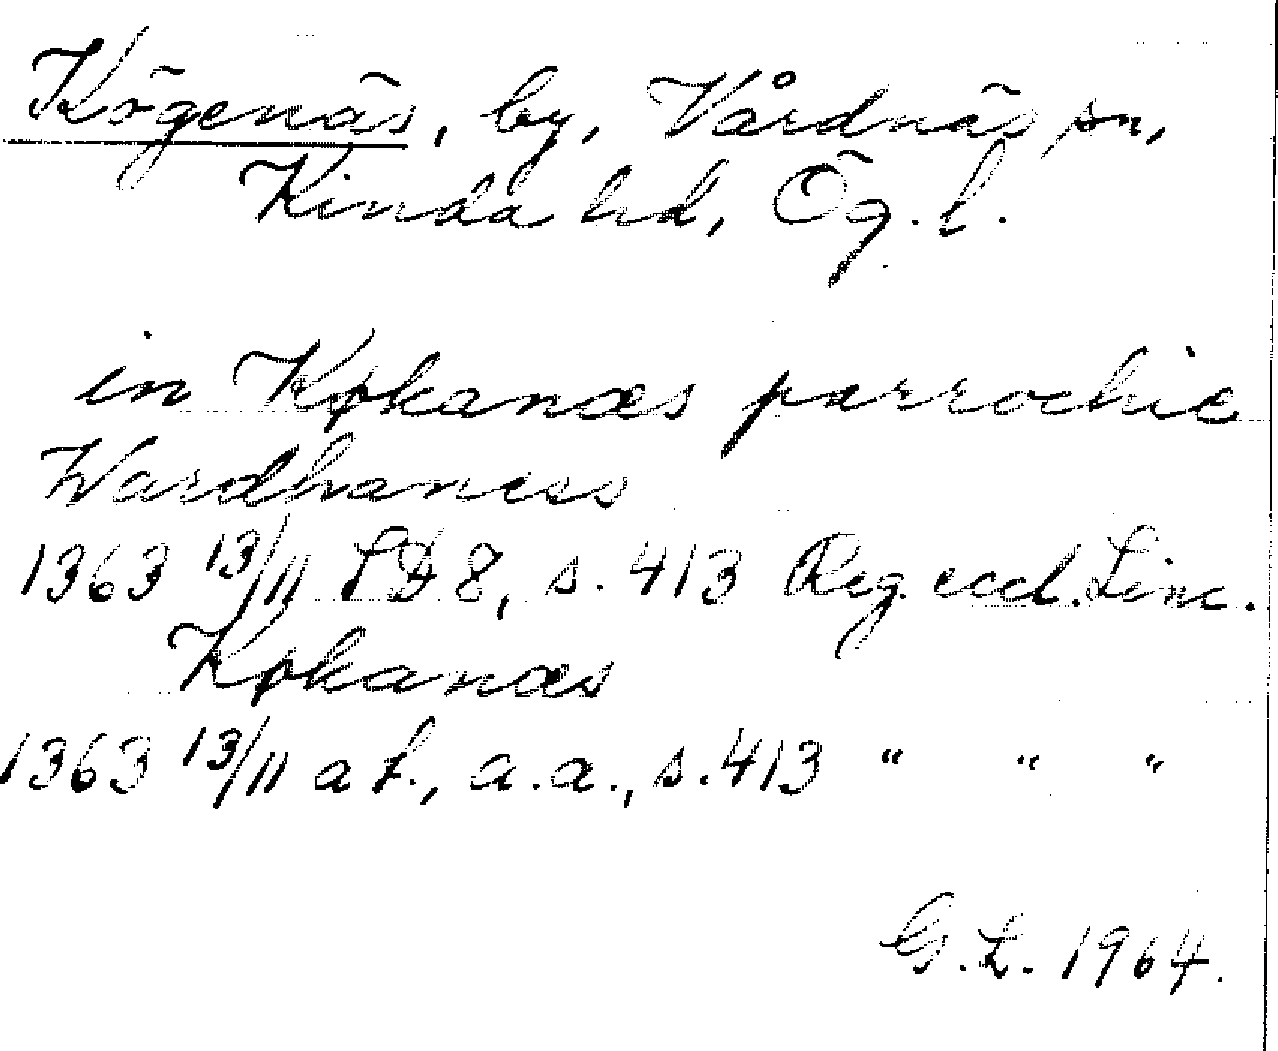 Kögenäs, by, Vårdnäs sn,
Kinda hd, Ög. l.
in Køkanæs parrochie
Wardhaness
1363 13/11 SD 8, s. 413 Reg. eccl. Linc.
Køkanæs
1363 13/11 a.a., s. 413 " " "
G. L. 1964.